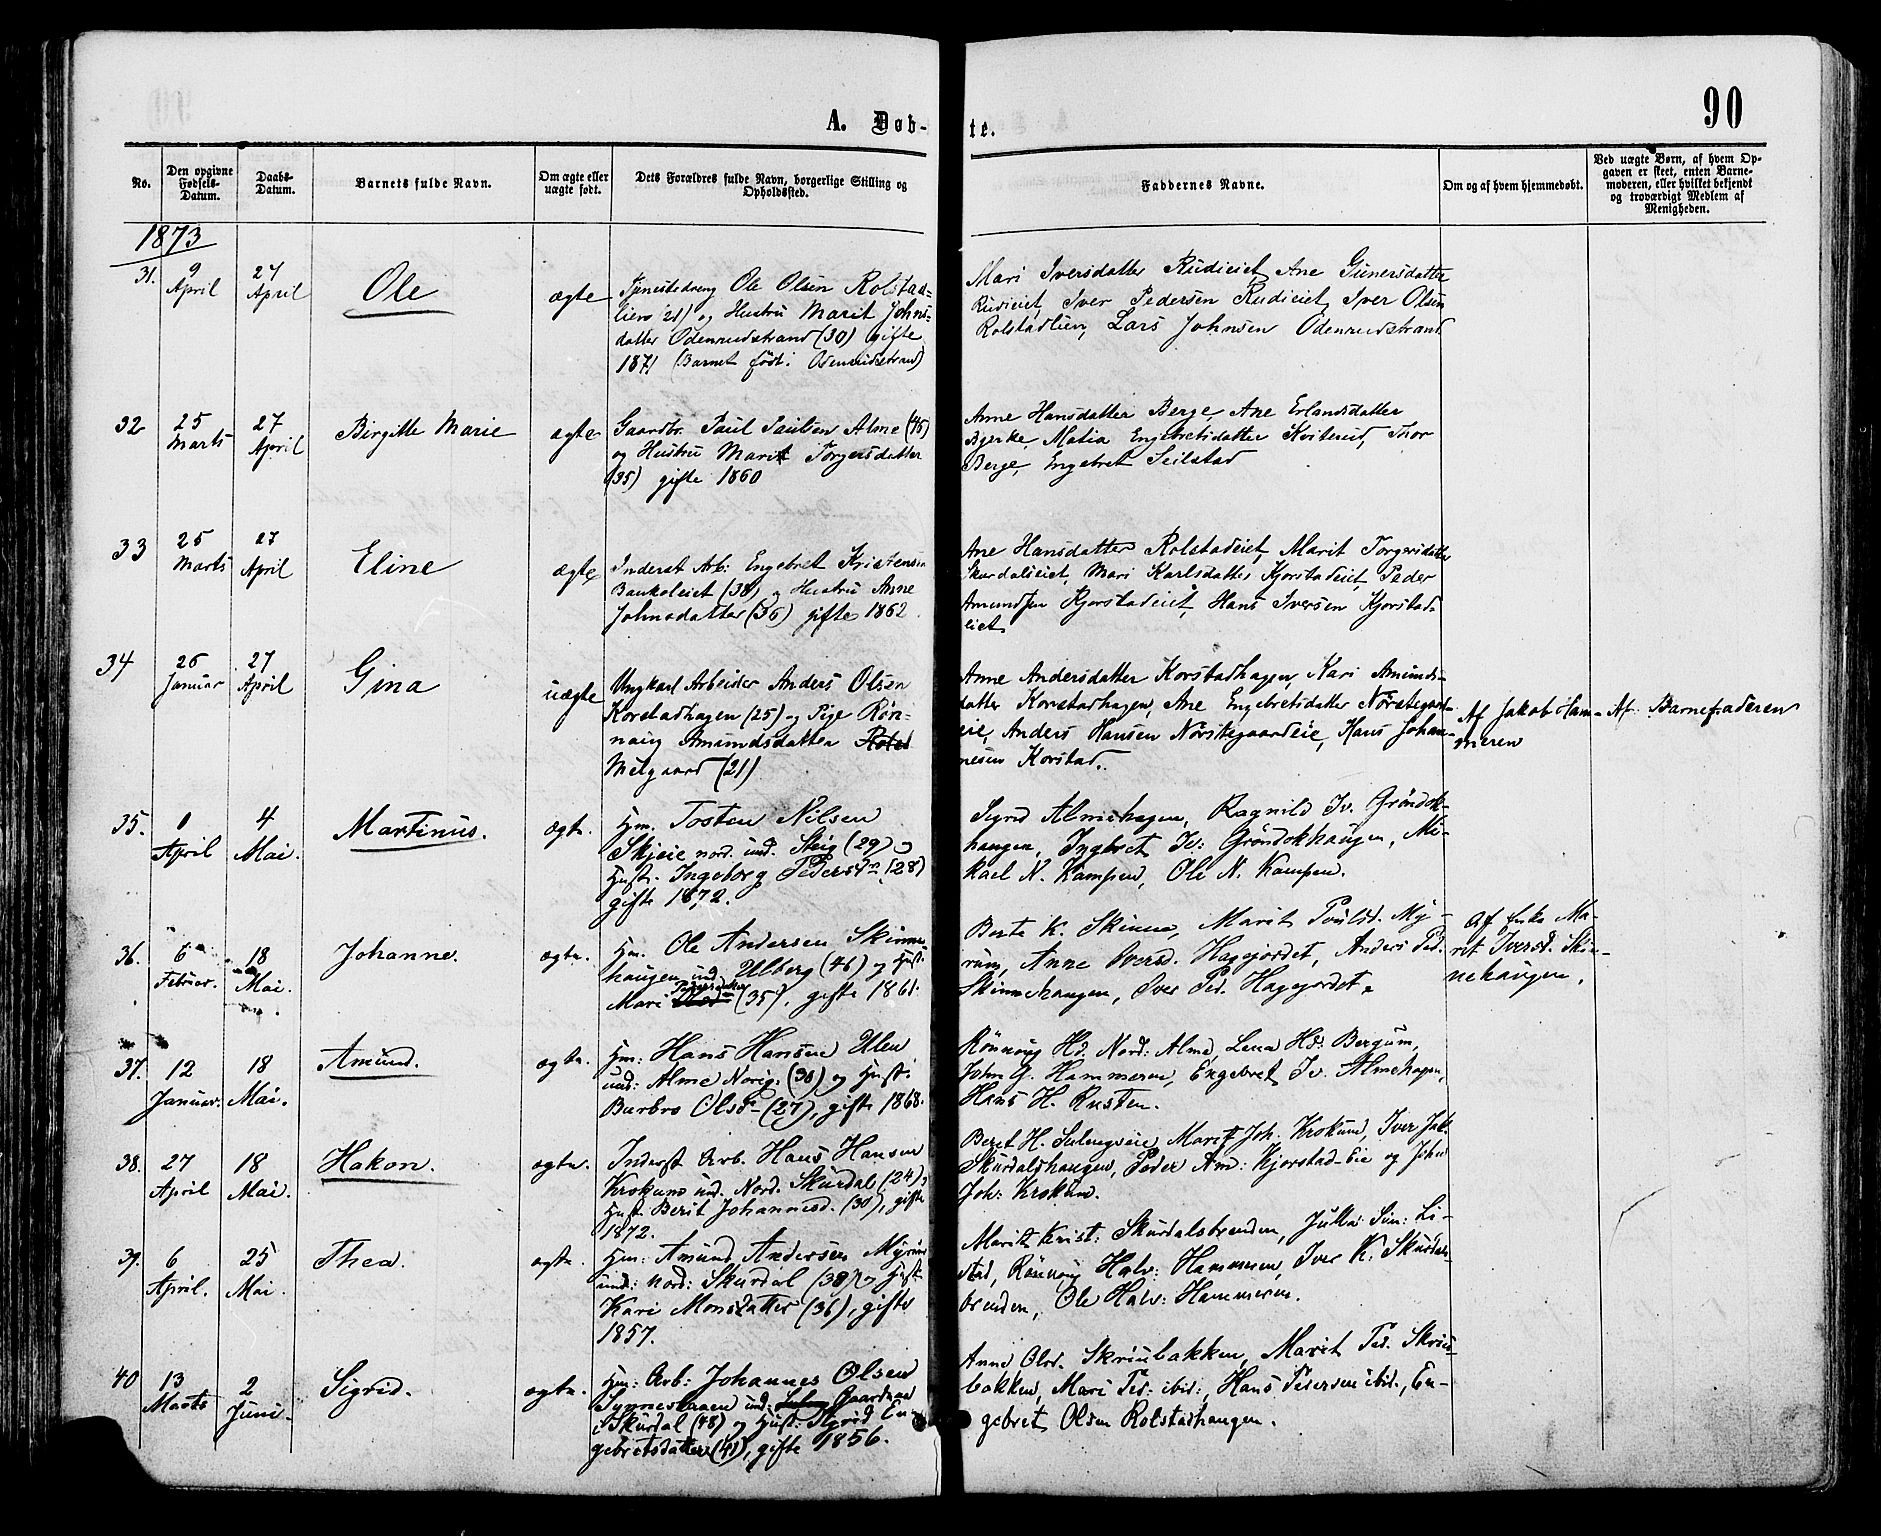 90
A. Døb-
te.
No.
Den opgivne Fødsels-Datum.
Daabs-Datum.
Barnets fulde Navn.
Om ægte eller uægte født.
Dets Forældres fulde Navn, borgerlige Stilling og Opholdssted.
Faddernes Navne.
Om og af hvem hjemmedøbt.
Ved uægte Børn, af hvem Op-
gaven er skeet, enten Barne-
moderen, eller hvilket bekjendt
og troværdigt Medlem af
Menigheden.
1873
31.
9 April
27 April
Ole
ægte
Tjenestedreng Ole Olsen Rolstad-
lien (21) og Hustru Marit Johns-
datter Odenrudstrand (30) gifte
1871 (Barnet født i Odenrudstrand)
Mari Iversdatter Rudieiet, Ane Gunersdatter
Rudieiet, Iver Pedersen Rudieiet, Iver Olsen
Rolstadlien, Lars Johnsen Odenrudstrand
32
25 Marts
27 April
Birgitte Marie
ægte
Gaardbr. Paul Paulsen Alme (45)
og Hustru Marit Torgersdatter
(35) gifte 1860
Anne Hansdatter Berge, Ane Erlandsdatter
Bjerke, Matia Engebretsdatter Kviterud, Thor
Berge, Engebret Seilstad
33
25 Marts
27 April
Eline
ægte
Inderst Arb: Engebret Kristensen
Baukoleiet (38) og Hustru Anne
Johnsdatter (36) gifte 1862.
Ane Hansdatter Rolstadeiet, Marit Torgersdatter
Skurdalseiet, Mari Karlsdatter Kjorstadeiet, Peder
Amundsen Kjorstadeiet, Hans Iversen Kjorstad-
eiet
34
26 Januar
27 April
Gina
uægte
Ungkarl Arbeider Anders Olsen
Korstadhagen (25) og Pige Røn-
naug Amundsdatter
Melgaard (21)
Anne Andersdatter Korstadhagen, Kari Amunds-
datter Korstadhagen, Ane Engebretsdatter Norstegaard-
eie, Anders Hansen Norstegaardeie, Hans Johan-
nesen Korstad.
Af Jakob Ham-
meren
Af Barnefaderen
35.
1 April
4 Mai.
Martinus.
ægte.
Hm. Tosten Nilsen
Skjeie nord. und. Steig (29) og
Hust. Ingeborg Pedersdr (28)
gifte 1872.
Sigrid Almehagen, Ragnild Iv. Grøndok-
haugen, Ingebret Iv: Grøndokhaugen, Mi-
kael N. Kampen, Ole N. Kampen.
36.
6 Februar.
18 Mai.
Johanne.
ægte.
Hm. Ole Andersen Skinne-
haugen und. Ulberg (46) og Hust.
Mari (35), gifte 1861.
Berte K. Skinne, Marit Poulsd. My-
rum, Anne Iversd. Hagejordet, Anders Ped.
Skinnehaugen, Iver Ped. Hagejordet.
Af Enke Ma-
rit Iversd. Skin-
nehaugen.
37.
12 Januar.
18 Mai.
Amund.
ægte.
Hm: Hans Hansen Ulen
und: Alme Norig. (30) og Hust.
Barbro Olsdr (27), gifte 1868.
Rönnoug Hd. Nord: Alme, Lena Hd: Bergum,
John G. Hammeren, Engebret Iv. Almehagen,
Hans H. Rusten.
38.
27 April
18 Mai.
Hakon.
ægte.
Inderst Arb. Hans Hansen
Krokum und. Nord. Skurdal (24) og
Hust. Berit Johannesd. (30), gifte
1872.
Beret H. Sulengseie, Marit Joh. Krokum, Iver Jak.
Skurdalshaugen, Peder Am: Kjorstad-Eie og John
Joh: Krokum.
39.
6 April.
25 Mai.
Thea.
ægte.
Hm: Amund Andersen Myrum
und: nord: Skurdal (38) og Hust.
Kari Monsdatter (36), gifte
1857.
Marit Krist: Skurdalsbrenden, Julia Sim: Li-
stad, Rönnoug Halv: Hammeren, Iver K. Skurdals-
brenden, Ole Halv: Hammeren.
40
13 Marts
2 Juni.
Sigrid.
ægte.
Hm: Arb: Johannes Olsen
und:
i Skurdal (48) og Hust. Sigrid En-
gebretsdatter (41), gifte 1856.
Anne Olsd. Skriubakken, Marit Ped. Skriu-
bakken, Mari Ped: ibid:, Hans Pedersen ibid., En-
gebret Olsen Rolstadhaugen.